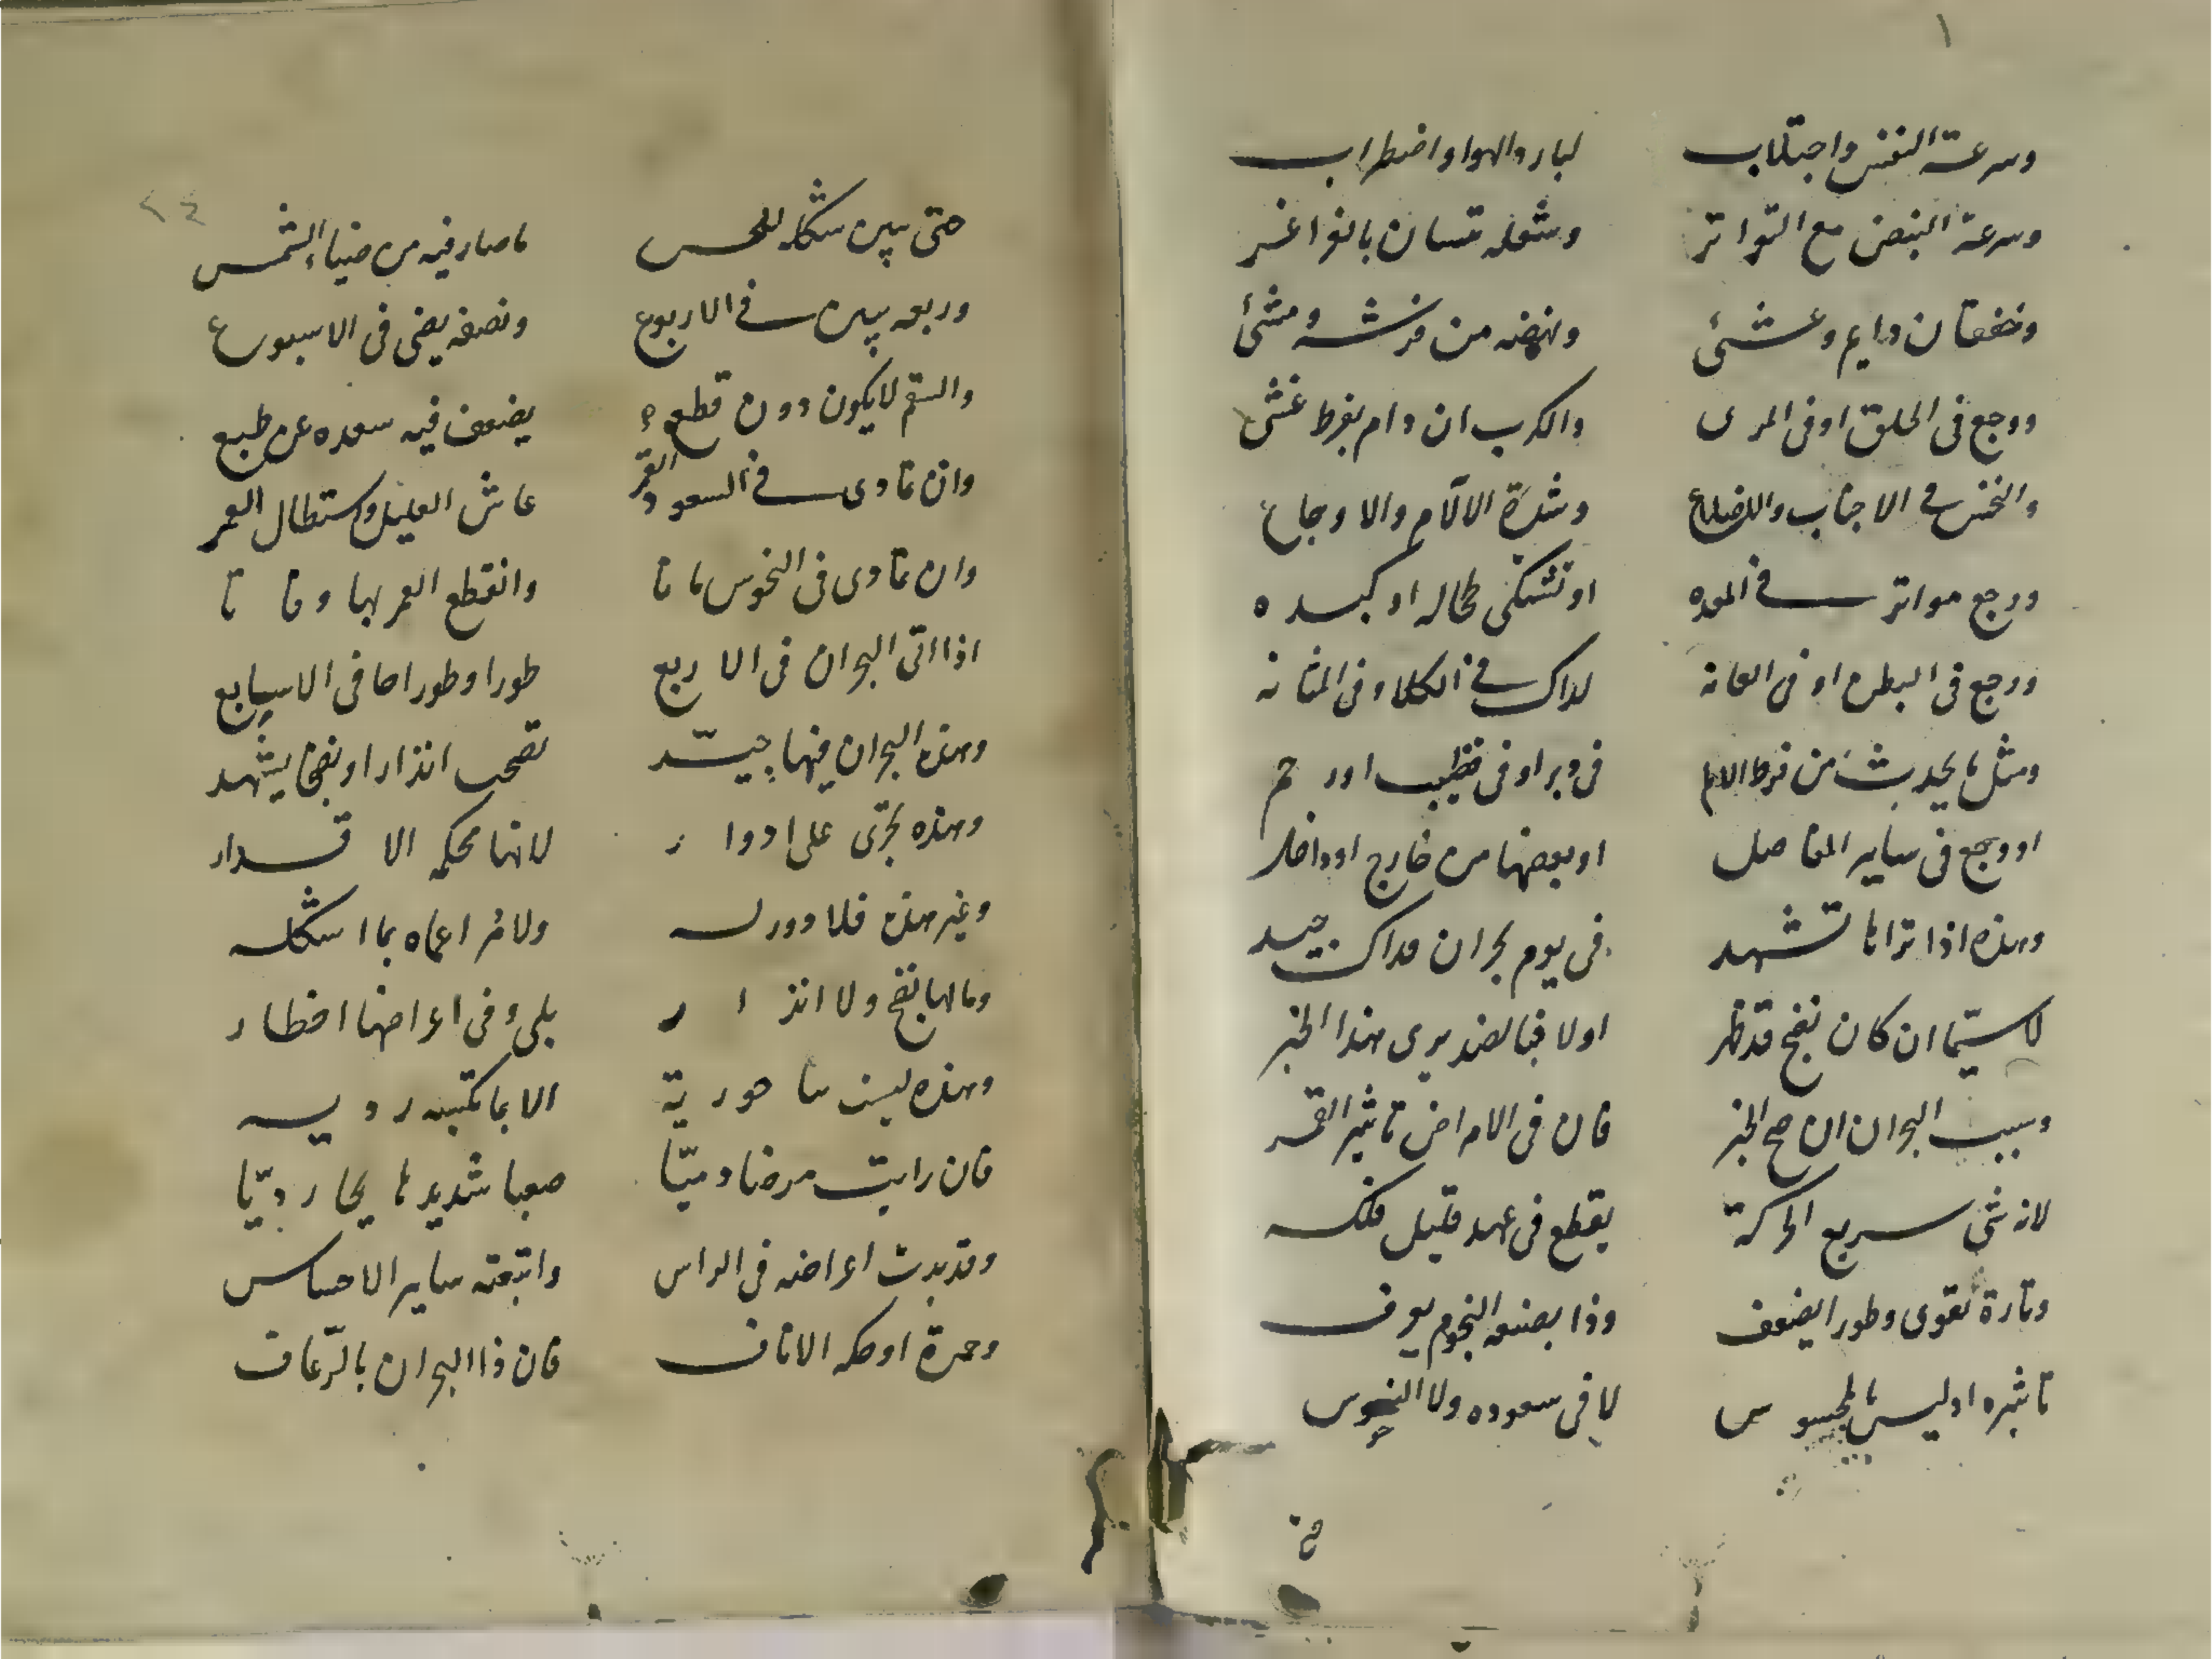 ١
وسرعة النفس واجتلاب لبارد الهوا واضطراب
وسرعة النبض مع التواتر وشعله تسان بالغواغر
وخفقان دايم وعشى ونهضه من فرشه ومشئ
ووجع فى الحلق او فى المرى والكرب ان دام بفرط غشى
والنخس فى الاجناب والاضلاع وشدة الالام والاوجاع
ووجع مواتر فى المعده او تشتكى طحاله او كبده
ووجع فى البطن او فى العانه لذاك فى الكلا وفى المثانه
ومثل ما يحدث من فرط الالم فى دبر او فى قظيب او رحم
او وجع فى ساير المفاصل او بعضها من خارج او داخل
وهذه اذا تراها تشهد فى يوم بحران فذاك جيد
لاسيما ان كان نضج قد ظهر اولا فبالضد يرى هذا الخبر
وسبب البحران ان صح الخبر فان فى الامراض تاثير القمر
لانه شى سريع الحركة يقطع فى عهد قليل فلكه
وتارة تقوى وطورا يضعف وذا بصنعه النجوم يعرف
تاثيره اذ ليس بالمحسوس لا فى سعوده ولا النحوس
حتى
٢٤
حتى يبين شكله للحس ما صار فيه من ضياء الشمس
وربعه يبين فى الاربوع ونصفه يضى فى الاسبوع
والسقم لا يكون دون قطع يضعف فيه سعده عن طبع
وان تمادى فى السعود القمر عاش العليل واستطال العمر
وان تمادى فى النحوس ماتا وانقطع العمر بها وفاتا
اذا اتى البحران فى الارابع طورا وطورا جا فى الاسابع
وهذه البحران فيها جيد تصحب انذار او نضجا يشهد
وهذه تجرى على ادوار لانها محكمه الاقدار
وغير هذه فلا دور له ولا مر اعماه بما اشكله
وما لها نضج ولا انذار بلى وفى اعراضها اخطار
وهذه ليست بها حورية الا بما تكتبه رديه
فان رايت مرضا دميا صعبا شديدا ما يحا رديا
وقد بدت اعراضه فى الراس واتبعته ساير الاحساس
وحمرة او حكه الاناف فان ذا البحران بالرعاف